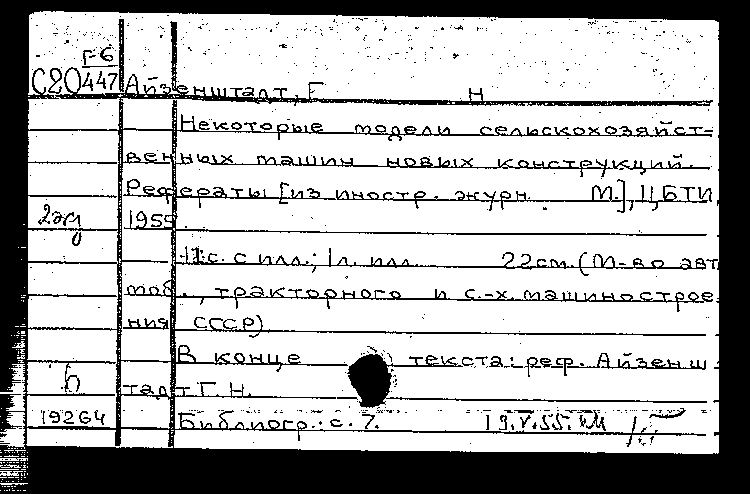 Г6
С20447 Айзенштадт, Г Н
Некоторые модели сельскохозяйст=
венных машин новых конструкций.
Рефераты [из иностр. журн. М.], ЦБТИ,
2 экз 1955.
11 с. с илл.; 1 л. илл. 22 см. (М-во авт
моб., тракторного и с.-х. машинострое
ния СССР)
В конце текста: реф. Айзенш
б тадт Г. Н.
19264 Библиогр.: с. 7. 19.V.55.